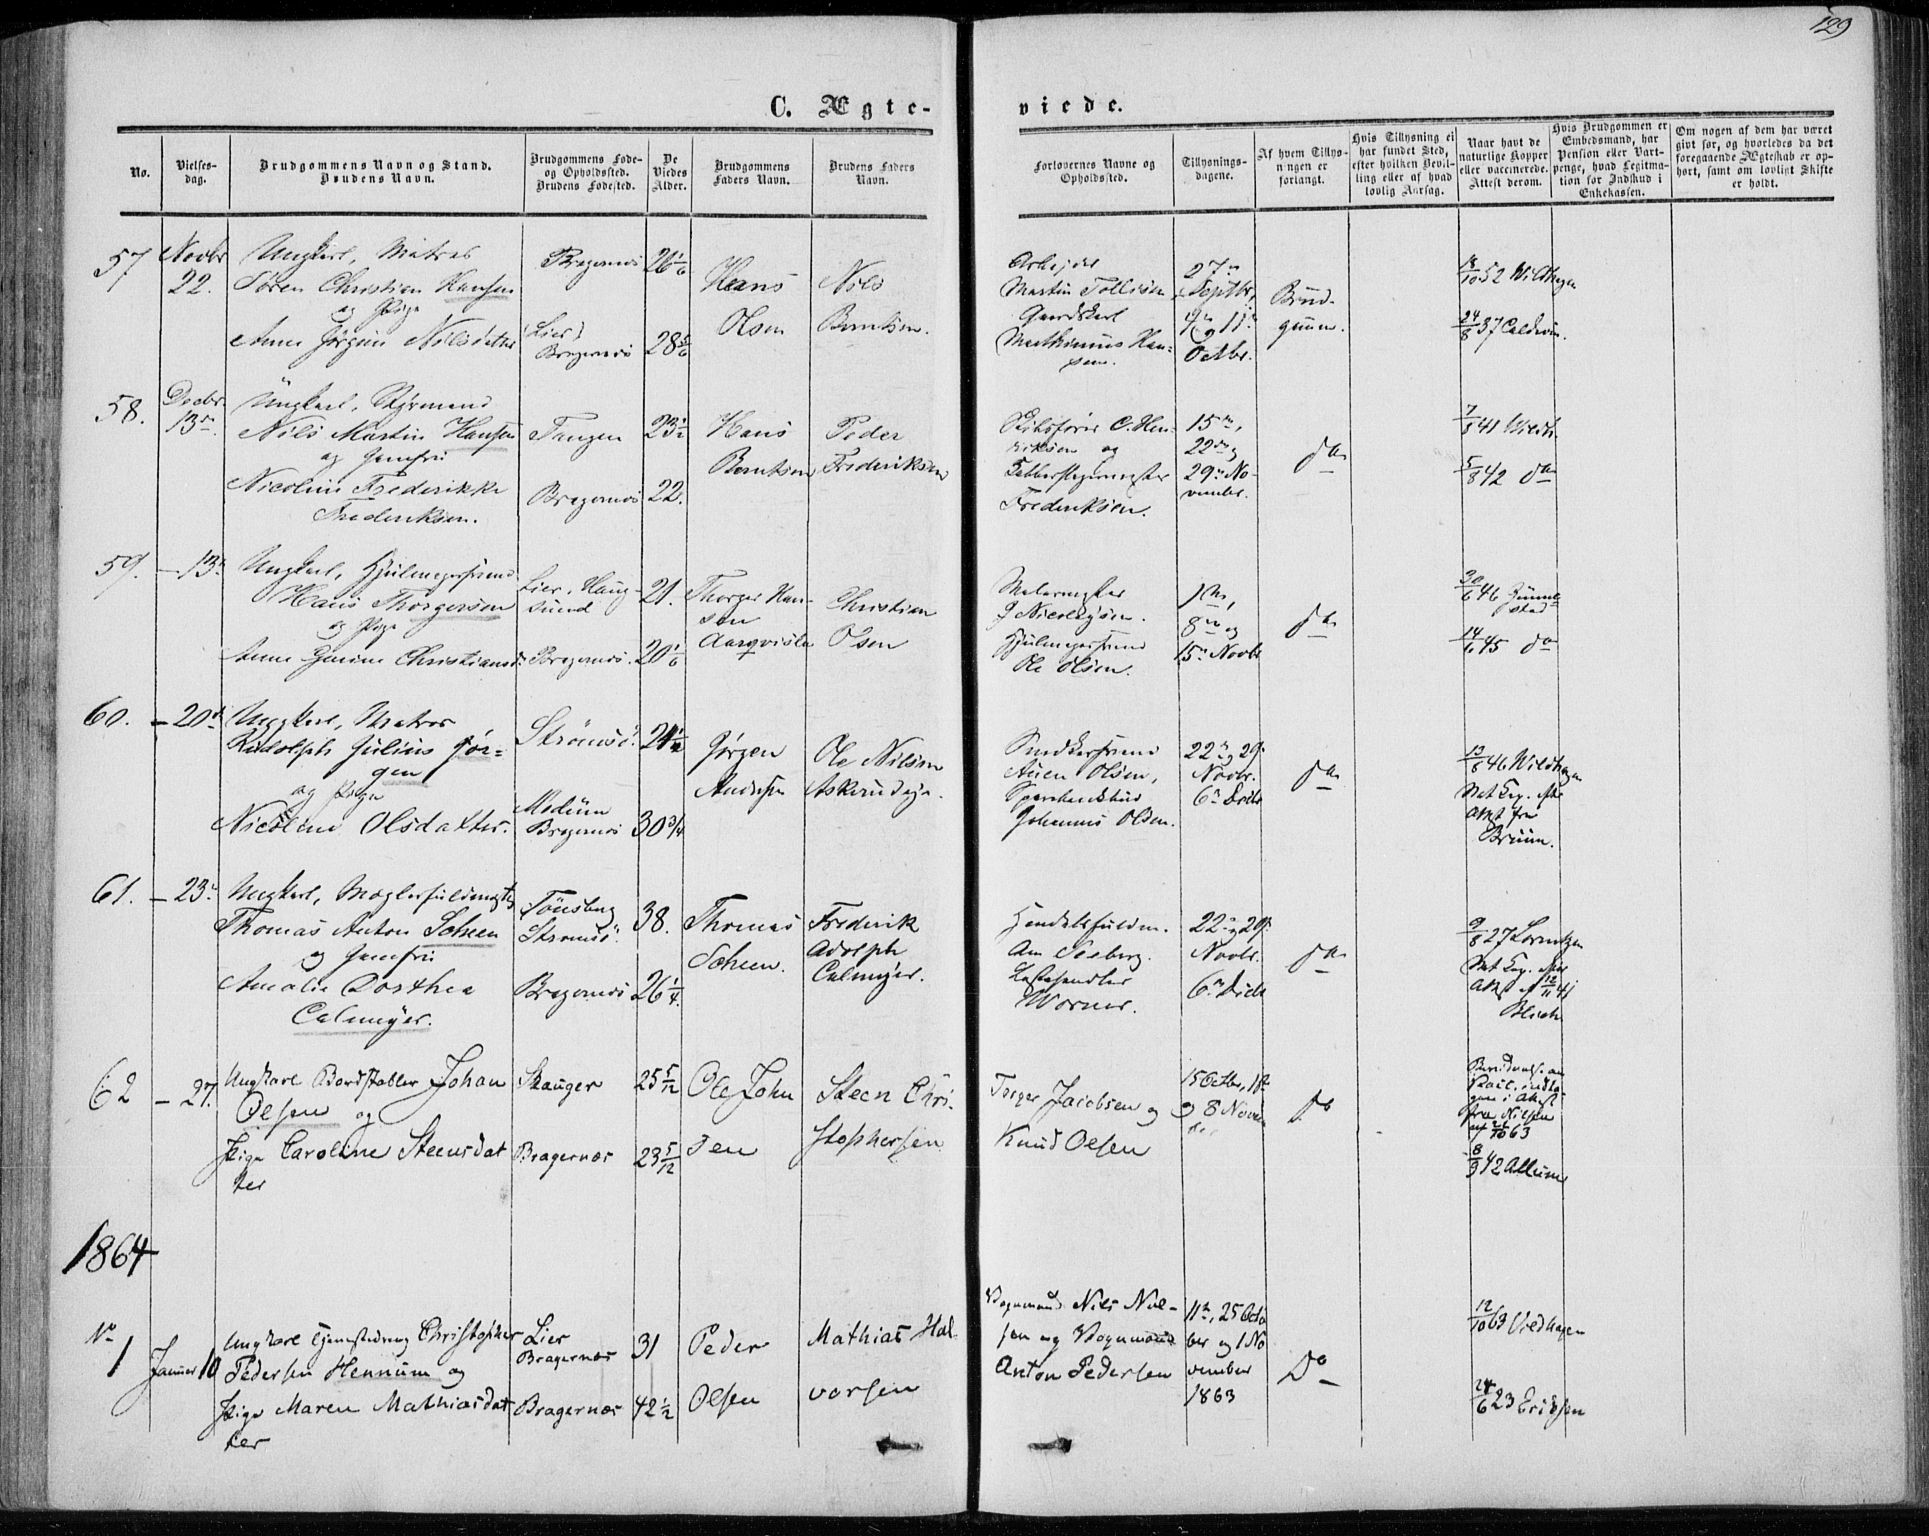 129
C. Ægte-
viede.
No.
Vielses-
dag.
Brudgommens Navn og Stand.
Brudens Navn.
Brudgommens Føde-
og Opholdssted.
Brudens Fødested.
De
Viedes
Alder.
Brudgommens
Faders Navn.
Brudens Faders
Navn.
Forlovernes Navne og
Opholdssted.
Tillysnings-
dagene.
Af hvem Tillys-
ningen er
forlangt.
Hvis Tillysning ei
har fundet Sted,
efter hvilken Bevil-
ling eller af hvad
lovlig Aarsag.
Naar havt de
naturlige Kopper
eller vaccinerede.
Attest derom.
Hvis Brudgommen er
Embedsmand, har
Pension eller Vart-
penge, hvad Legitima-
tion for Indskud i
Enkekassen.
Om nogen af dem har været
gift før, og hvorledes da det
foregaaende Ægteskab er op-
hørt, samt om lovligt Skifte
er holdt.
57
Novbr
22.
Ungkarl, Matros
Søren Christian Hansen
og Pige
Anne Jørgine Nilsdatter
Bragernæs
(Lier)
Bragernæs
26 1/6
28 5/6
Hans
Olsen
Nils
Berntsen.
Martin Tollisen
Gaardskarl
Mathinius Han-
sen.
27de
Septbr,
4de og 11te
Octbr.
Brud-
gommen.
52 Wildhagen
24/8 37 Calderin.
58.
Decbr
13de
Ungkarl, Styrmand
Nils Martin Hansen
og Jomfru
Nicoline Frederikke
Frederiksen.
Tangen
Bragernæs
23 1/2
22.
Hans
Berntsen
Peder
Frederiksen
Skibsfører C. Hen-
riksen og
Frederiksen.
15de,
22de og
29de No-
vember.
do
7/8 41 Wildh.
5/8 42 do
59.
- 13de
Ungkarl, Hjulmagersvend
Hans Thorgersen
og Pige
Anne Christiansd:
Lier, Haug-
sund
Bragernæs.
21.
20 1/6
Thorger Han-
sen
Aarqvisla
Christian
Olsen
Malermester
Nicolaysen.
Hjulmagersvend
Ole Olsen.
1ste,
8de og
15de Novbr
do
30/6 46
14/6 45 do
60.
- 20de
Ungkarl, Matros
Rudolph Julius Jør-
gen
og Pige
Nicoline Olsdatter.
Strømsø.
Modum
Bragernæs
24 1/2
30 3/4
Jørgen
Andersen
Ole Nilsen
Askerudeje.
Snedkersvend
Olsen,
Johannes Olsen.
22de og 29de
Novbr.
6te Decbr
do
13/8 46 Wildhagen
Nat. Kop. efter
Attest fra
Bruun.
61.
- 23de
Ungkarl, Mæglerfuldmægtig
Thomas Anton Scheen
og Jomfru
Amalie Dorthea
Calmeyer.
Tønsberg
Strømsø.
Bragernæs
38.
26 1/4.
Thomas
Scheen.
Frederik
Adolph
Calmeyer.
Handelsfuldm.
Am Seeberg.
Worner.
22de og 29de
Novbr.
6te Decbr
do
9/8 27 Lorentzen
Nat. Kop. efter
Attest af
Blich
62
- 27.
Ungkarl Bordstabler Johan
Olsen og
Pige Caroline Steensdat
ter
Skauger
Bragernæs
25 5/12
23 5/12
Ole John
sen
Steen Chri-
stophersen
Torger Jacobsen og
Knud Olsen
15 Octbr, 1ste
og 8 Novem
ber
do
gen i Attest
fra Nilsen
63
8/9 42 Allum
1864
No
1
Januar 10
Ungkarl Christopher
Pedersen Hennum og
Pige Maren Mathiasdat
ter
Lier
Bragernæs
Bragernæs
31
42 1/2
Peder
Olsen
Mathias Hal-
vorsen
Vognmand Nils Niel-
sen og Vognmand
Anton Pedersen
11te, 25 Octo
ber og 1 No
vember
1863
Do
12/10 63 Vildhagen
24/6 23 Eriksen